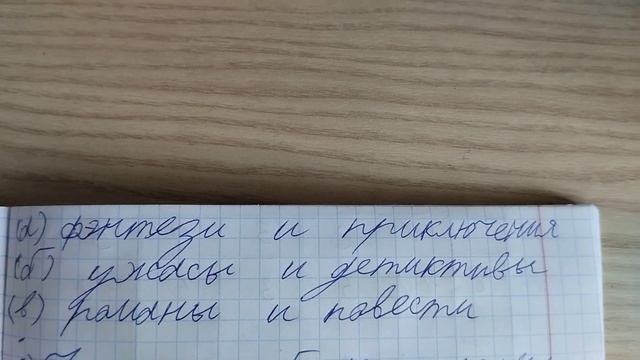 (а) фэнтези и приключения
(б) ужасы и детиктивы
(в) романы и повести